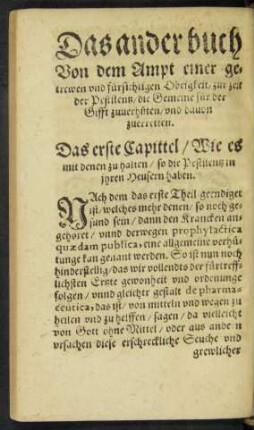 Das ander buch
Von dem Ampt einer ge-
trewen vnd fürsichtigen Obrigkeit / zur zeit
der Pestilentz / die Gemeine für der
Gifft zuuerhüten / vnd dauon
zuerretten.
Das erste Capittel / Wie es
mit denen zu halten / so die Pestilentz in
jhren Heusern haben.
NAch dem das erste Theil geendiget
ist / welches mehr denen / so noch ge-
sund sein / dann den Krancken an-
gehöret / vnnd derwegen prophylactica
quædam publica, eine allgemeine verhü-
tunge kan genant werden. So ist nun noch
hinderstellig / das wir vollendt der fürtreff-
lichsten Erste gewonheit vnd ordenunge
folgen / vnnd gleichr gestalt de pharma-
ceutica, das ist / von mitteln vnd wegen zu
heilen vnd zu helffen / sagen / da vielleicht
von Gott ohne Mittel / oder aus andern
vrsachen diese erschreckliche Seuche vnd
grewlicher